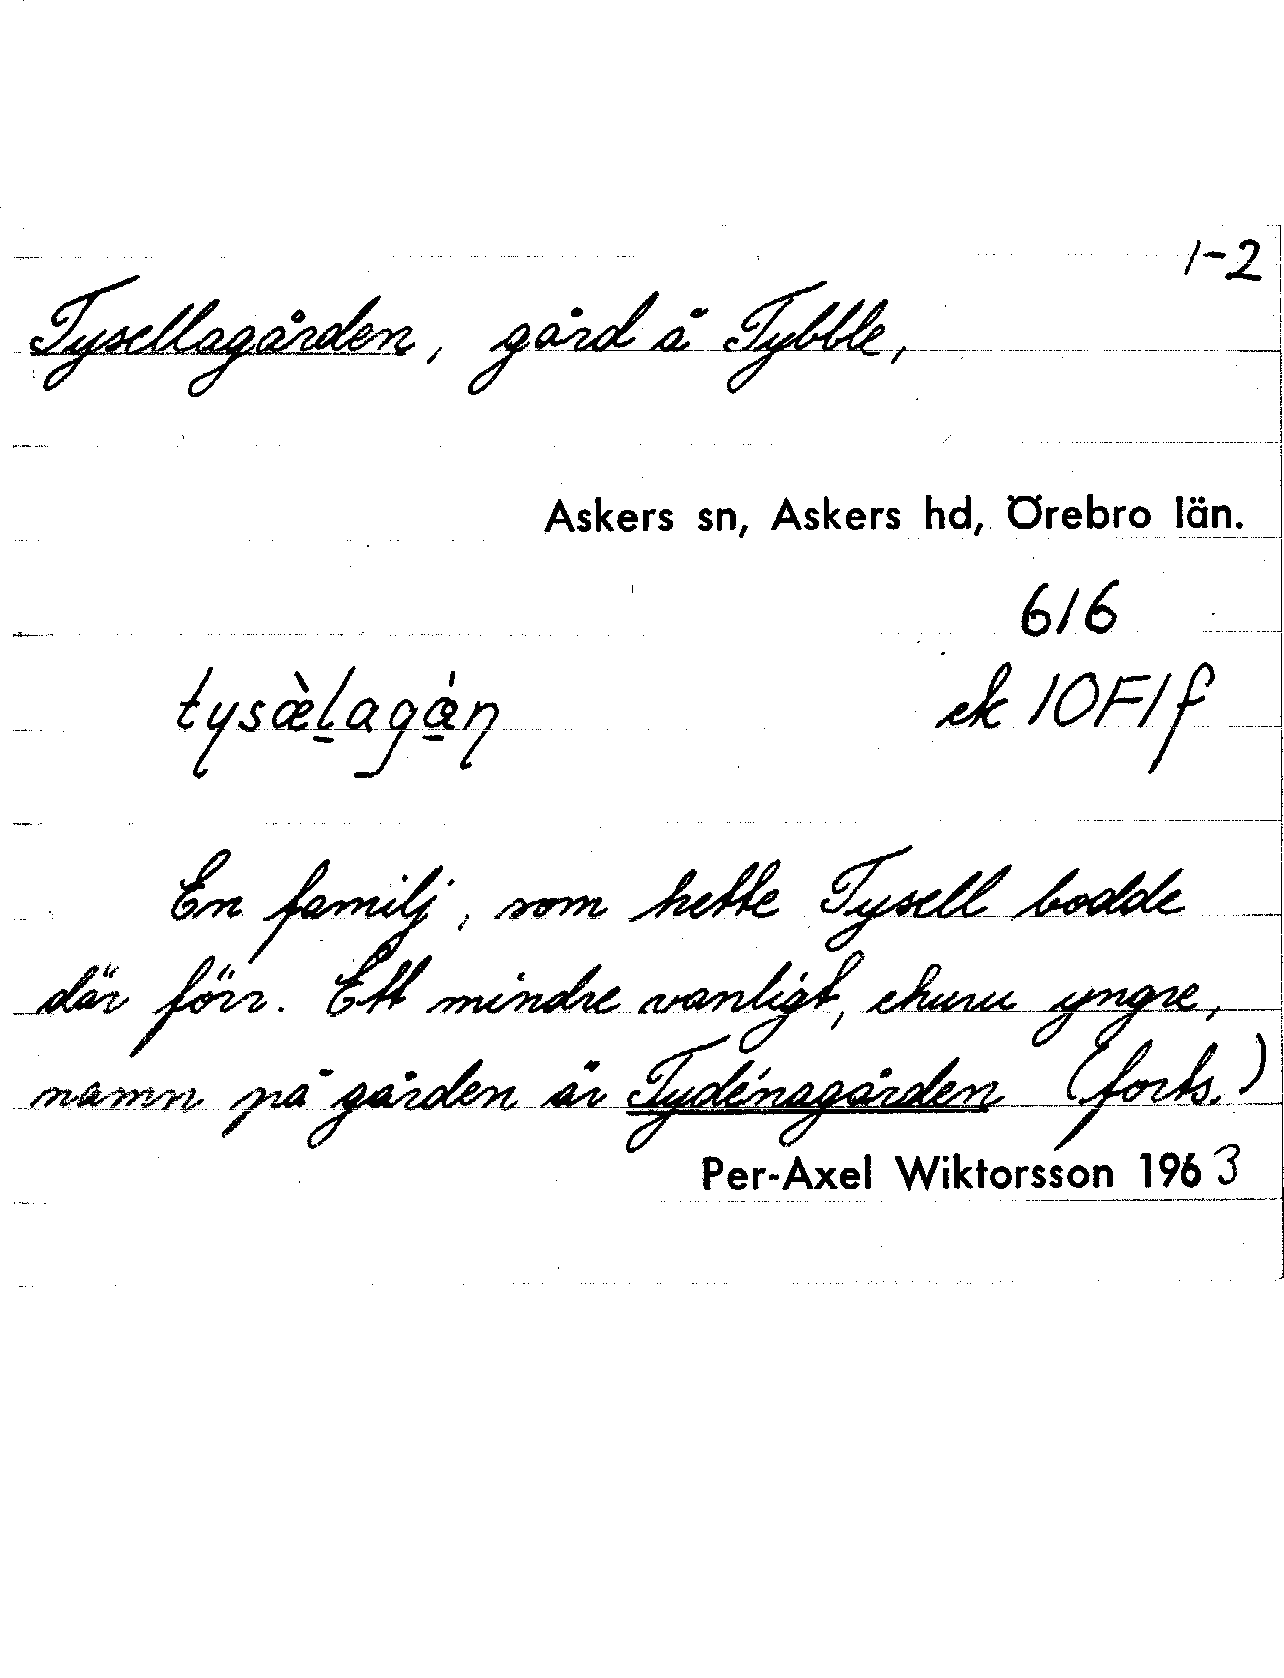 1-2
Tysellagården, gård å Tybble,
Askers sn, Askers hd, Örebro län.
616
tysæ̀l̠agǻ̠ņ ek 10F1f
En familj, som hette Tysell bodde
där förr. Ett mindre vanligt, ehuru yngre,
namn på gården är Tydénagården (forts.)
Per-Axel Wiktorsson 1963